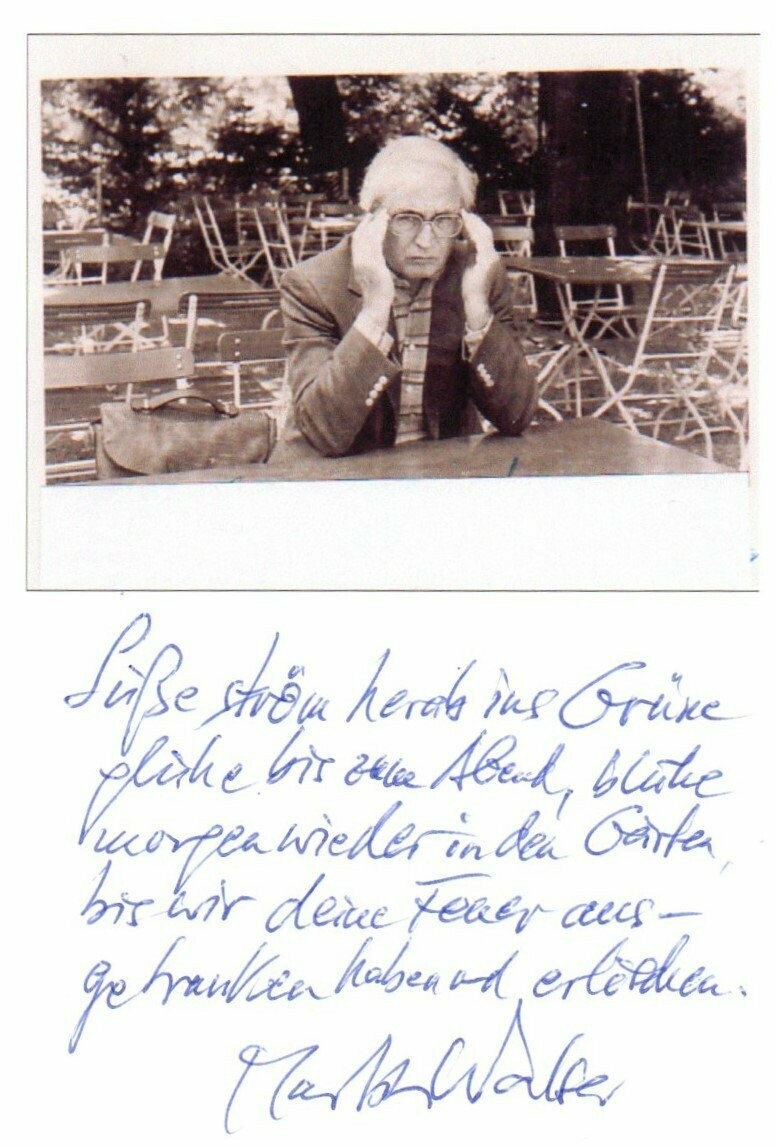 Süße ström herab ins Grüne
glühe bis zum Abend, blühe
morgen wieder in den Gärten,
bis wir deine Feuer aus-
getrunken haben und erlöschen.
Martin Walser